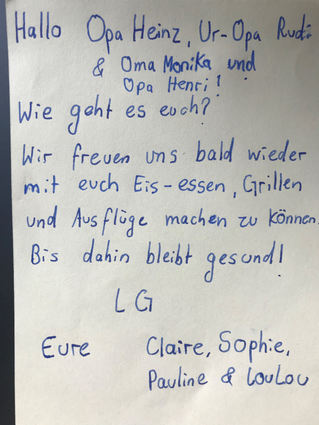 Hallo Opa Heinz, Ur-Opa Rudi
& Oma Monika und
Opa Henri!
Wie geht es euch?
Wir freuen uns bald wieder
mit euch Eis-essen, Grillen
und Ausflüge machen zu können.
Bis dahin bleibt gesund!
LG
Eure Claire, Sophie,
Pauline & LouLou